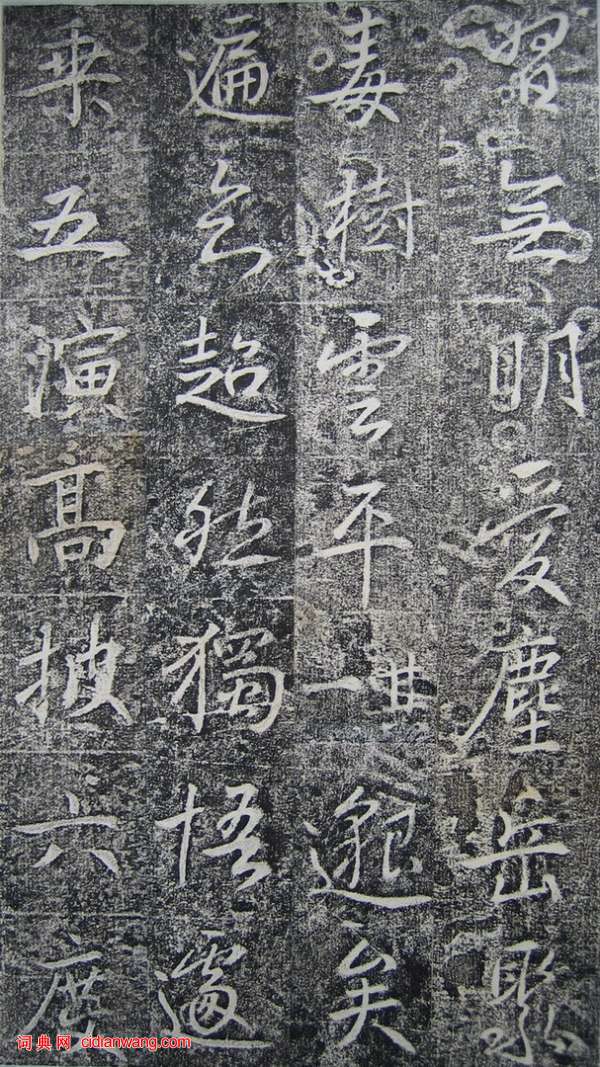 習无明愛塵岳聚
毒樹雲平其一邈矣
遍知超然獨悟遽
乘五演高披六度
词典网 cidianwang.com